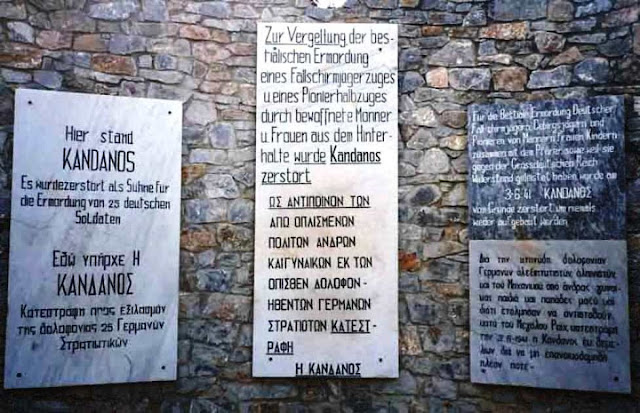 Hier stand
KANDANOS
Es wurdezerstört als Sühne für
die Ermordung von 25 deutschen
Soldaten
Εδώ υπήρχε Η
ΚΑΝΔΑΝΟΣ
Κατεστράφη προς εξιλασμόν
της δολοφονίας 25 Γερμανών
Στρατιωτικών
Zur Vergeltung der bes-
tialischen Ermordung
eines Fallschirmjägerzuges
u. eines Pionierhalbzuges
durch bewaffnete Männer
u. Frauen aus dem Hinter-
halte wurde Kandanos
zerstört
ΩΣ ΑΝΤΙΠΟΙΝΟΝ ΤΩΝ
ΑΠΟ ΟΠΛΙΣΜΕΝΩΝ
ΠΟΛΙΤΩΝ ΑΝΔΡΩΝ
ΚΑΙ ΓΥΝΑΙΚΩΝ ΕΚ ΤΩΝ
ΟΠΙΣΘΕΝ ΔΟΛΟΦΟΝ-
ΗΘΕΝΤΩΝ ΓΕΡΜΑΝΩΝ
ΣΤΡΑΤΙΩΤΩΝ ΚΑΤΕΣΤ-
ΡΑΦΗ
Η ΚΑΝΔΑΝΟΣ
Für die Bestiale Ermordung Deutscher
Fallschirmjägern, Gebirgsjägern und
Pionieren von Männern, Frauen, Kindern
zusammen mit den Priester sowie weil sie
gegen der Grossdeutschen Reich
Widerstand geleistet haben wurde am
3·6·41 KANDANOS
von Grunde zerstört um niemals
wieder aufgebaut werden
Δια την κτηνώδη δολοφονίαν
Γερμανών αλεξιπτωτιστών, αλπινιστών
και του Μηχανικού από άνδρας, γυναί-
κας, παιδιά και παπάδες μαζύ και
διότι ετόλμησαν να αντισταθούν
κατά του Μεγάλου Ράιχ κατεστράφη
την 3-6-1941 η Κάνδανος εκ θεμε-
λίων, δια να μη επανοικοδομηθή
πλέον ποτέ-